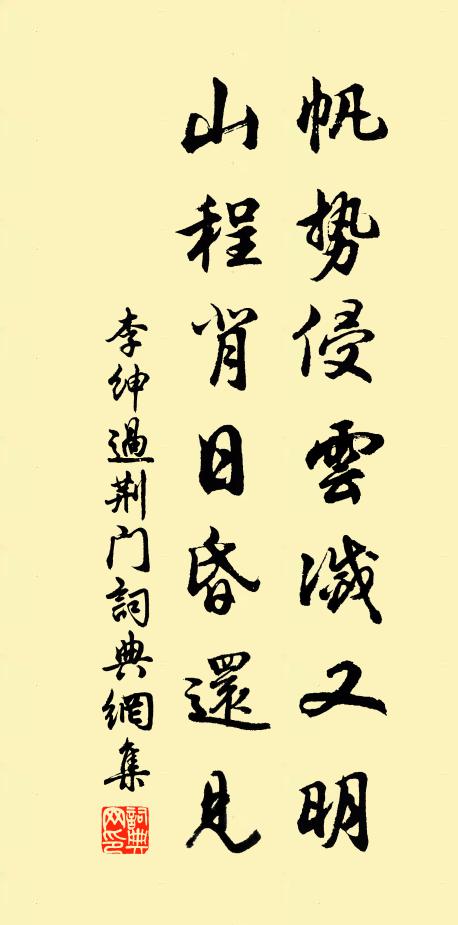 帆势侵雲滅又明
山程背日昏還見
李紳過荆门詞典網集
詞典网印